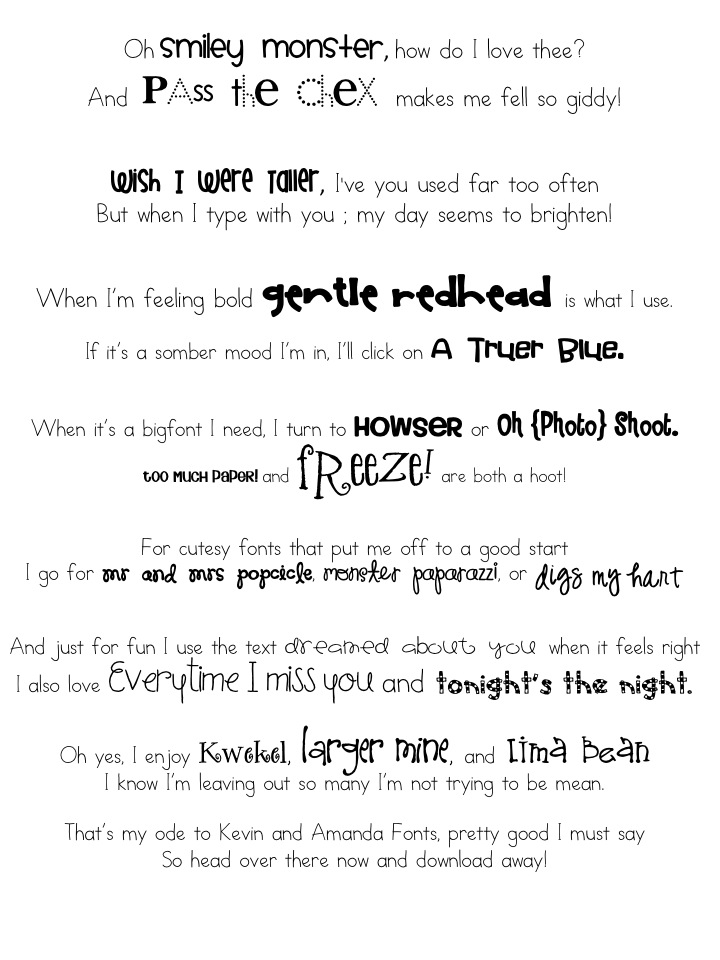 Oh smiley monster, how do I love thee?
And PAss thE chEX makes me fell so giddy!
Wish I Were Taller, I've you used far too often
But when I type with you ; my day seems to brighten!
When I'm feeling bold gentle redhead is what I use.
If it's a somber mood I'm in, I'll click on A Truer Blue.
When it's a bigfont I need, I turn to HOWSER or Oh {Photo} Shoot.
too much paper! and fREEZE! are both a hoot!
For cutesy fonts that put me off to a good start
I go for mr and mrs popcicle, monster paparazzi, or digs my hart
And just for fun I use the text dreamed about you when it feels right
I also love Everytime I miss you and tonight's the night.
Oh yes, I enjoy Kwekel, larger mine, and Lima Bean
I know I'm leaving out so many I'm not trying to be mean.
That's my ode to Kevin and Amanda Fonts, pretty good I must say
So head over there now and download away!